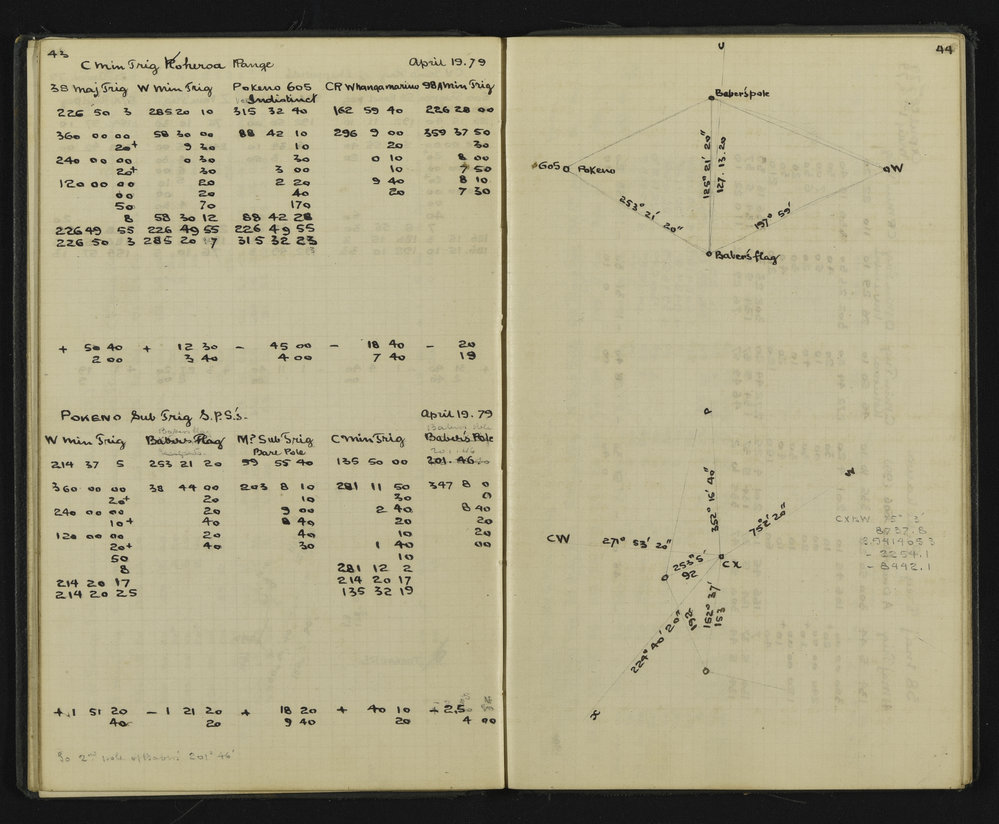 43
C Min Trig Koheroa Range April 19.79
38 Maj Trig W Min Trig Pokeno 605 CR Whangamarino 98A Min Trig
Indistinct
226 50 3 285 20 10 315 32 40 162 59 40 226 28 00
360 00 00 58 30 00 88 42 10 296 9 00 359 37 50
20+ 9 30 10 20 30
240 00 00 0 30 30 0 10 8 00
20+ 30 3 00 10 7 50
120 00 00 20 2 20 9 40 8 10
00 20 40 20 7 30
50 70 170
8 58 30 12 88 42 28
226 49 55 226 49 55 226 49 55
226 50 3 285 20 7 315 32 23
+ 50 40 + 12 30 - 45 00 - 18 40 - 20
2 00 3 40 4 00 7 40 19
POKENO Sub Trig S.P.S's. April 19.79
W Min Trig Baber's Flag M? Sub Trig C Min Trig Baber's Pole
Bare Pole
214 37 5 253 21 20 99 55 40 135 50 00 201.46.
360 00 00 38 44 00 203 8 10 281 11 50 347 8 0
20+ 20 10 30 0
240 00 00 20 9 00 2 40 8 40
10+ 40 8 40 20 20
120 00 00 20 40 10 20
20+ 40 30 1 40 00
50 10
8 281 12 2
214 20 17 214 20 17
214 20 25 135 32 19
+ 1 51 20 - 1 21 20 + 18 20 + 40 10 + 2.5
40 20 9 40 20 4 00
So 2nd pole of Babers 201° 46'
44
U
Baber's pole
605 Pokeno
W
125° 21' 20"
127. 13. 20
253° 21' 20"
197° 59'
Baber's flag
P
W
352° 16' 40"
75° 2' 20"
CX to W 75° 3'
8737.8
3.9414053
- 2254.1
- 8442.1
CW
271° 53' 20"
253° 5'
92
CX
152° 37'
153
192
224° 40' 20"